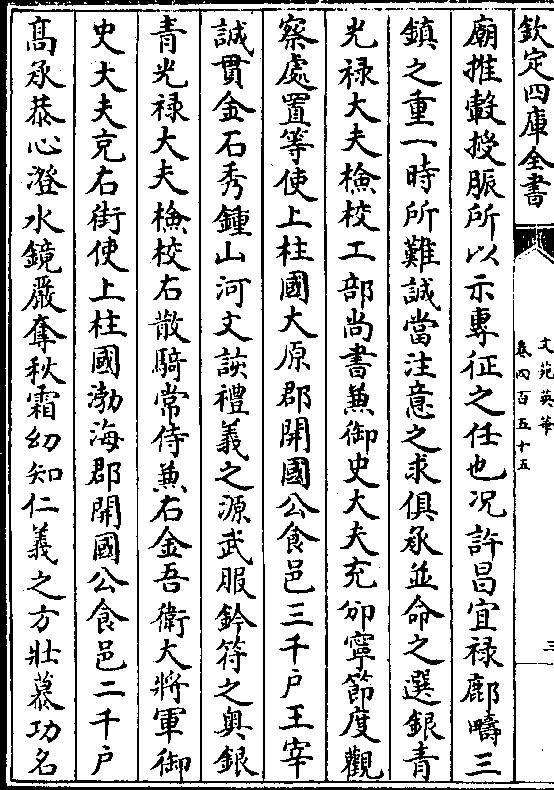 欽定四庫全書
文苑英華
卷四百五十五
三
廟推轂授脤所以示專征之任也况許昌宜禄鄜疇三
鎮之重一時所難誠當注意之求俱承並命之選銀青
光禄大夫檢校工部尚書兼御史大夫充邠寧節度觀
察處置等使上柱國太原郡開國公食邑三千户王宰
誠貫金石秀鍾山河文談禮義之源武服鈐符之奥銀
青光禄大夫檢校右散騎常侍兼右金吾衛大將軍御
史大夫克右街使上柱國渤海郡開國公食邑二千户
髙承恭心澄水鏡嚴奪秋霜幼知仁義之方壯慕功名